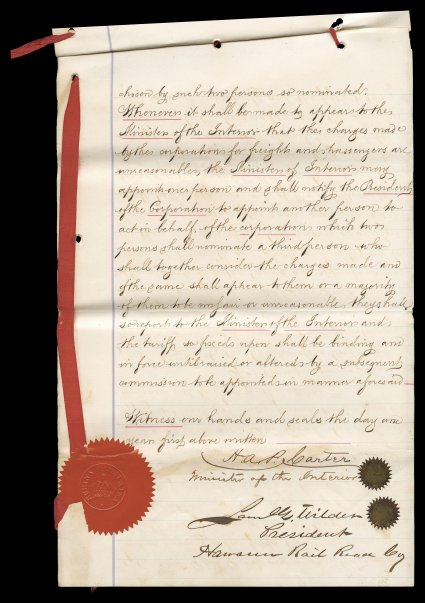 chosen by such two persons so nominated.
Whenever it shall be made to appear to the
Minister of the Interior that the charges made
by the corporation for freight and passengers are
unreasonable, the Minister of Interior may
appoint one person and shall notify the President
of the Corporation to appoint another person to
act on behalf of the corporation which two
persons shall nominate a third person who
shall together consider the charges made and
if the same shall appear to them or a majority
of them to be unfair or unreasonable they shall
so report to the Minister of the Interior and
the tariff so fixed upon shall be binding and
in force until raised or altered by a subsequent
commission to be appointed in manner aforesaid
Witness our hands and seals the day and
year first above written
H. A. P. Carter
Minister of the Interior
Saml G. Wilder
President
Hawaiian Rail Road Cy